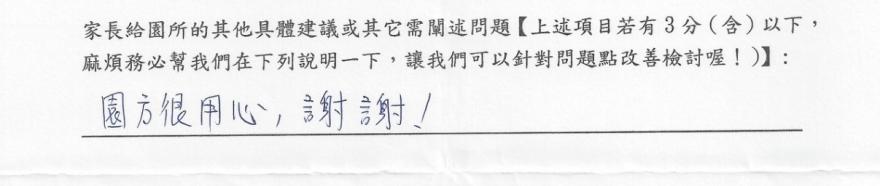 家長給園所的其他具體建議或其它需闡述問題【上述項目若有3分(含)以下，
麻煩務必幫我們在下列說明一下，讓我們可以針對問題點改善檢討喔！)】：
園方很用心，謝謝！